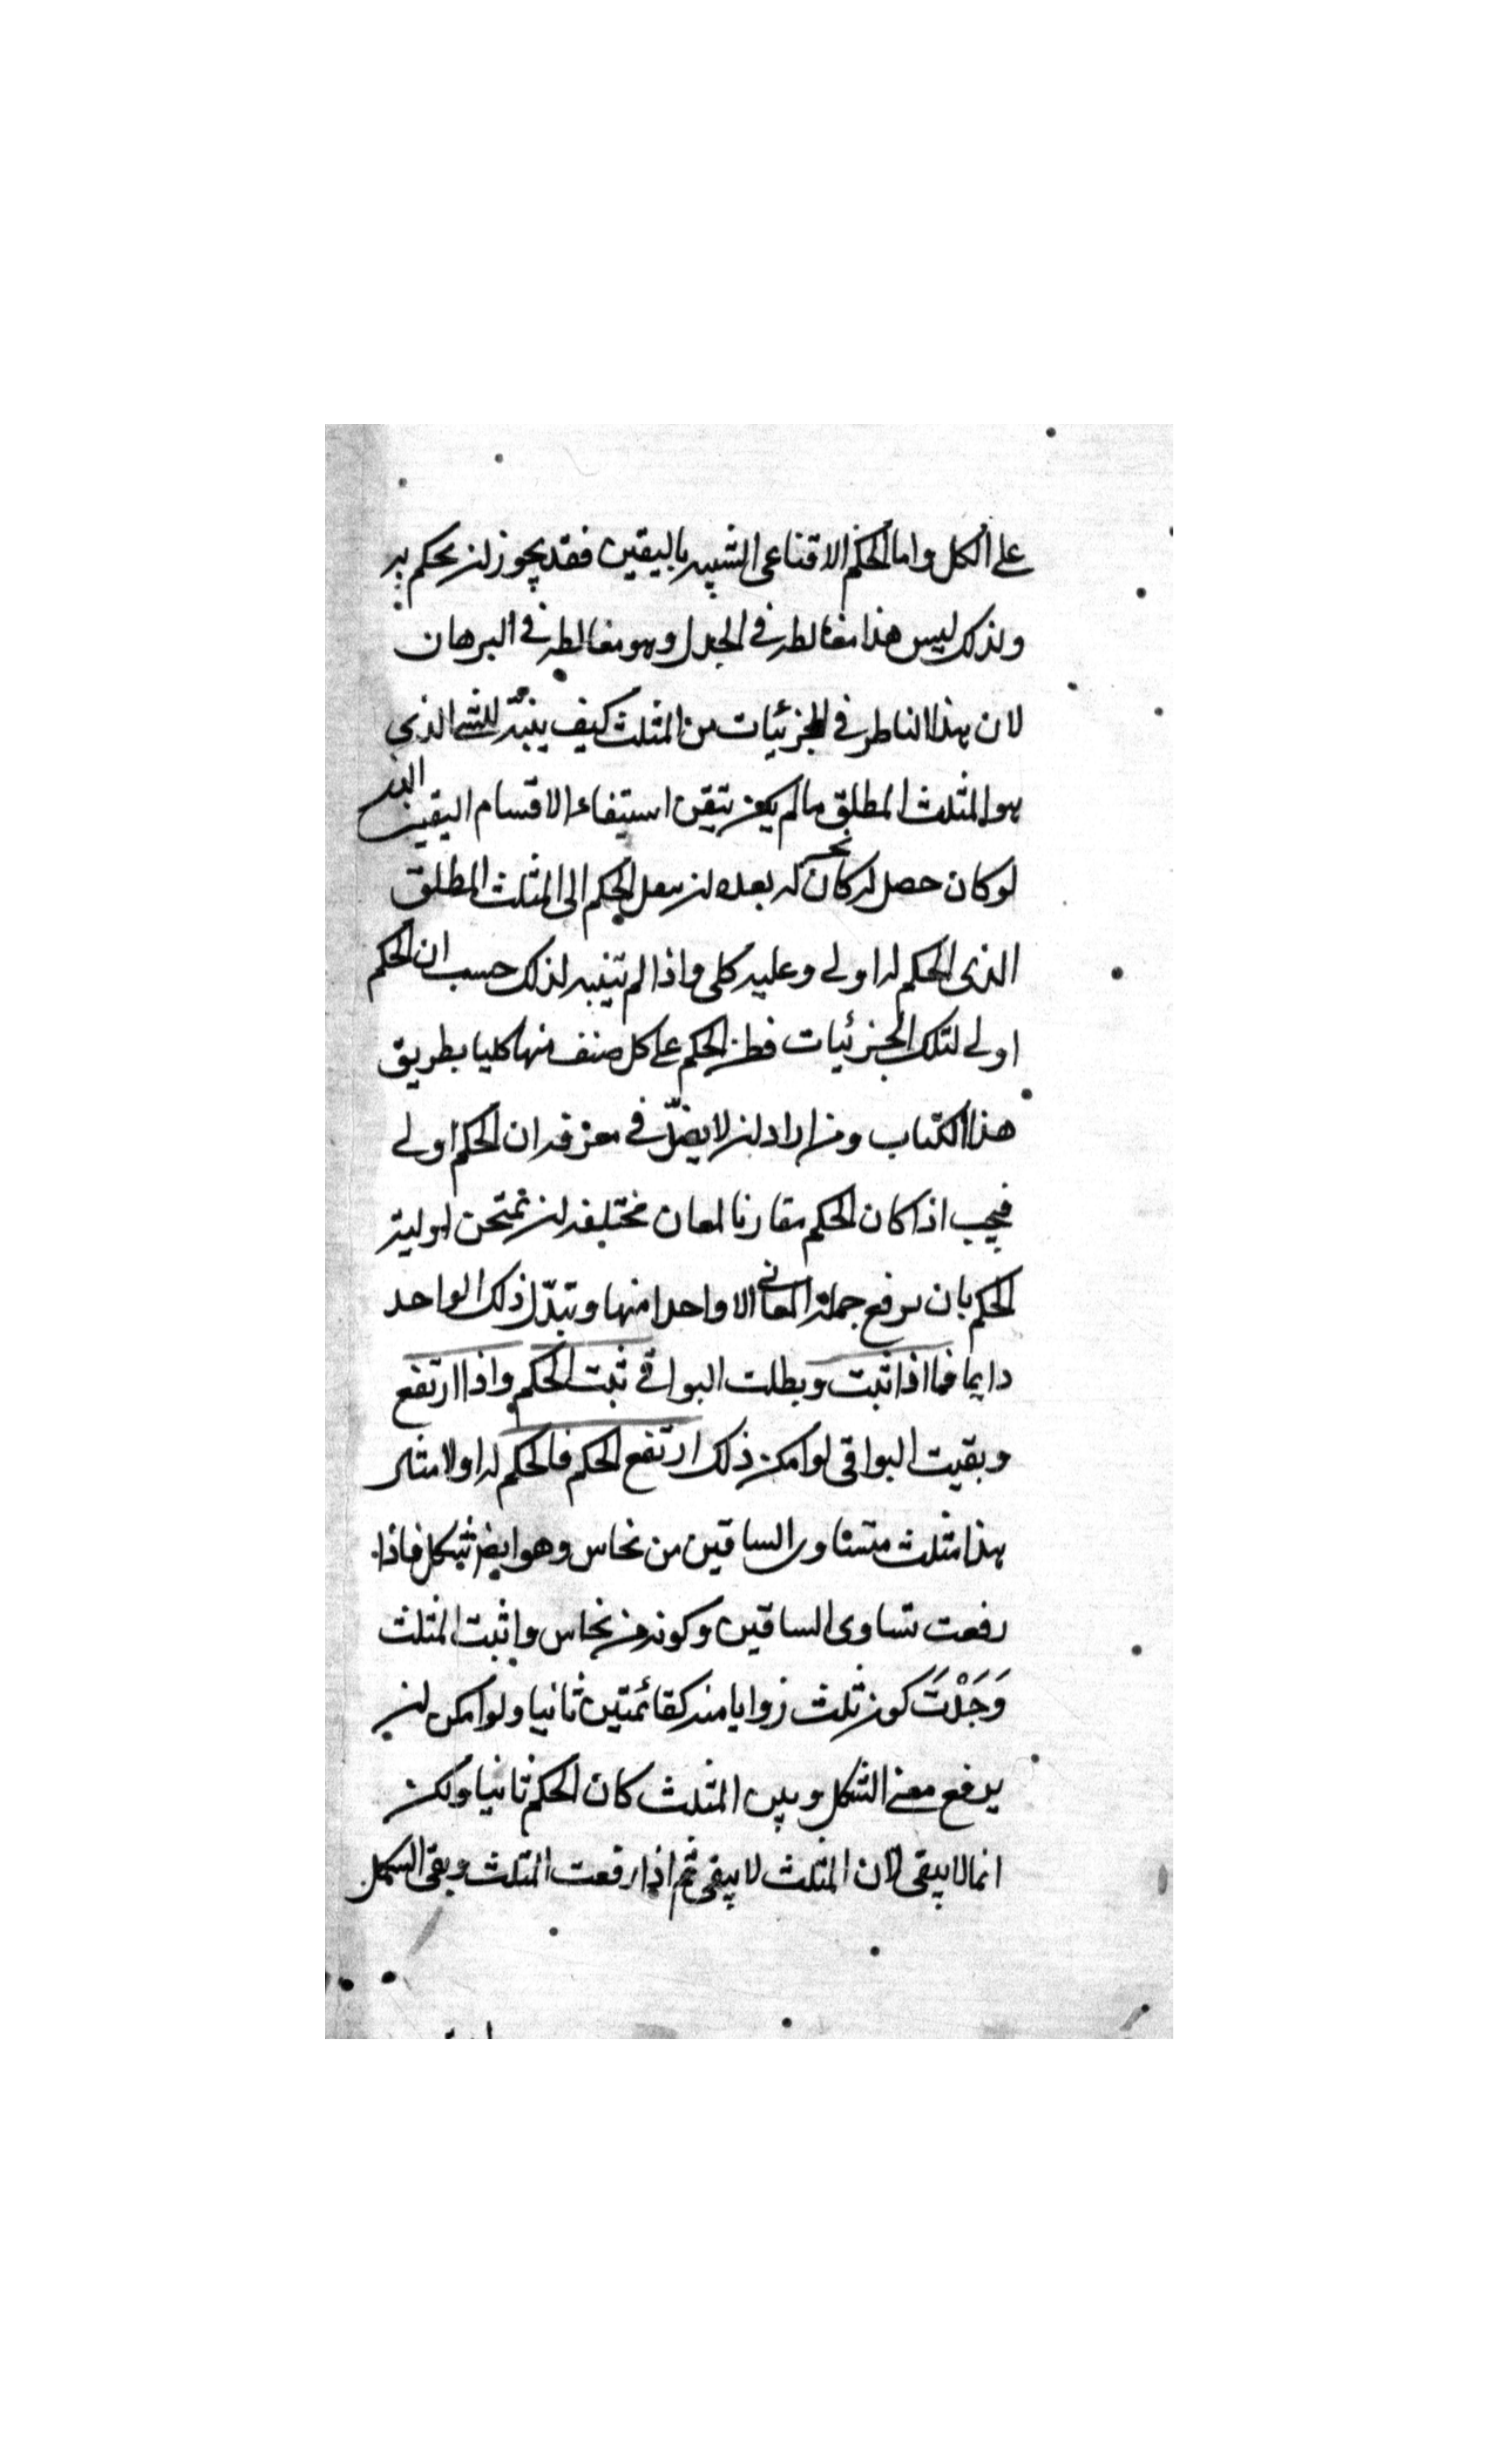 على الكل واما الحكم الاقناعى الشبيه باليقين فقد يجوز ان يحكم به
ولذلك ليس هذا مغالطه فى الجدل وهو مغالطه فى البرهان
لان هذا الناظر فى الجزئيات من المثلث كيف ينبه للشى الذي
هو المثلث المطلق ما لم يكن يتقن استيفاء الاقسام اليقين الذى
لو كان حصل له كان له بعده ان ينقل الحكم الى المثلث المطلق
الذى الحكم له اولى وعليه كلى واذا لم يتنبه لذلك حسب ان الحكم
اولى لتلك الجزئيات فظن الحكم على كل صنف منها كليا بطريق
هذا الكتاب ومن اراد ان لا يضلّ فى معرفه ان الحكم اولى
فيجب اذا كان الحكم مقارنا لمعان مختلفه ان تمتحن اولية
الحكم بان يرفع جملة المعانى الا واحدا منها وتبدّل ذلك الواحد
دايما فما اذا ثبت وبطلت البواقى ثبت الحكم واذا ارتفع
وبقيت البواقى لو امكن ذلك ارتفع الحكم فالحكم له اولا مثاله
هذا مثلث متساوى الساقين من نحاس وهو ايضا شكل فاذا
رفعت تساوى الساقين وكونه من نحاس واثبت المثلث
وَجَدْتَ كون ثلث زوايا منه كقائمتين ثانيا ولو امكن ان
يرفع معنى الشكل ويبقى المثلث كان الحكم ثانيا ولكن
انما لا يبقى لان المثلث لا يبقى ثم اذا رفعت المثلث وبقى الشكل